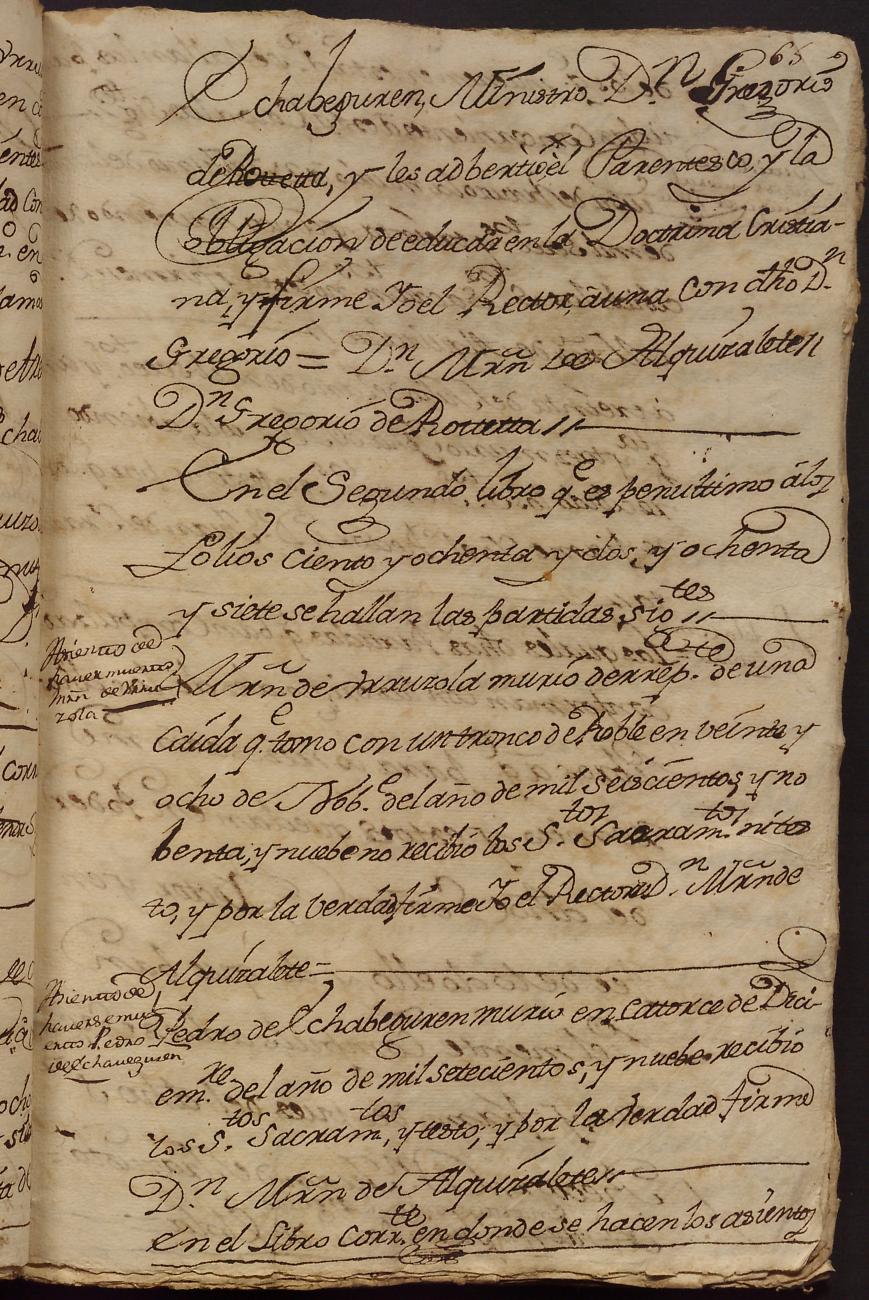 65
Echabeguren, Ministro D.n Gregorio
de Rouetta, y les adbertio èl Parentezco, y la
Obligación de educar en la Doctrina Cristia-
na, y firme Yo el Rector, áuna con dho D.n
Gregorio = D.n Mrñ de Alquizalete //
D.n Gregorio de Rottetta //
En el Segundo libro q.e es penultimo à los
folios ciento y ochenta y dos, y ochenta
y siete se hallan las partidas, sig.tes //
Asiento de
hauer muerto
Mrñ de Urru
zola
Mrñ de Urruzola murio de rrep.te de una
Caída q.e tomo con un tronco de Roble en veinte y
ocho de Nob.e del año de mil seiscientos, y no
benta, y nuebe no recibio los S.tos Sacram.tos ni tes
to, y por la Verdad firme Yo el Rector D.n Mrñ de
Alquizalete =
Asiento de
hauerse mu
erto Pedro
de Echaueguren
Pedro de Echabeguren murio en Cattorce de Dici-
em.re del año de mil setecientos, y nuebe recibio
los S.tos Sacram.tos, y testo, y por la Verdad firme
D.n Mrñ de Alquizalete //
En el Libro Corr.te en donde se hacen los asientos